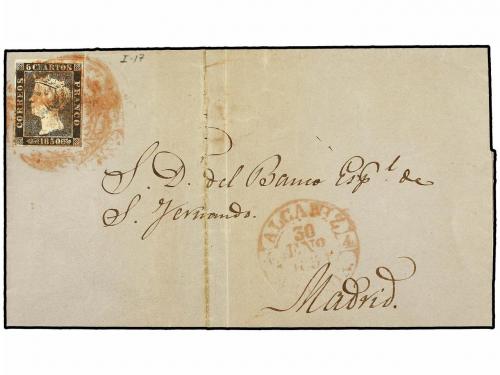 I-17
6 CUARTOS
CORREOS
FRANCO
1850
S. D. del Banco Esp.l de
S. Fernando.
ALCAÑIZ
30
ENO
Madrid.